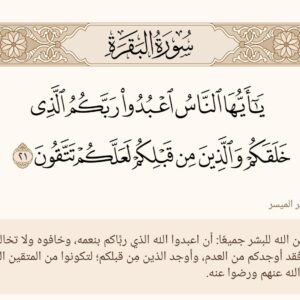 سُورَةُ الْبَقَرَةِ
يَٰٓأَيُّهَا ٱلنَّاسُ ٱعْبُدُوا۟ رَبَّكُمُ ٱلَّذِى
خَلَقَكُمْ وَٱلَّذِينَ مِن قَبْلِكُمْ لَعَلَّكُمْ تَتَّقُونَ ٢١
الميسر
الله للبشر جميعًا: أن اعبدوا الله الذي ربَّاكم بنعمه، وخافوه ولا
فقد أوجدكم من العدم، وأوجد الذين مِن قبلكم؛ لتكونوا من المتقين
الله عنهم ورضوا عنه.